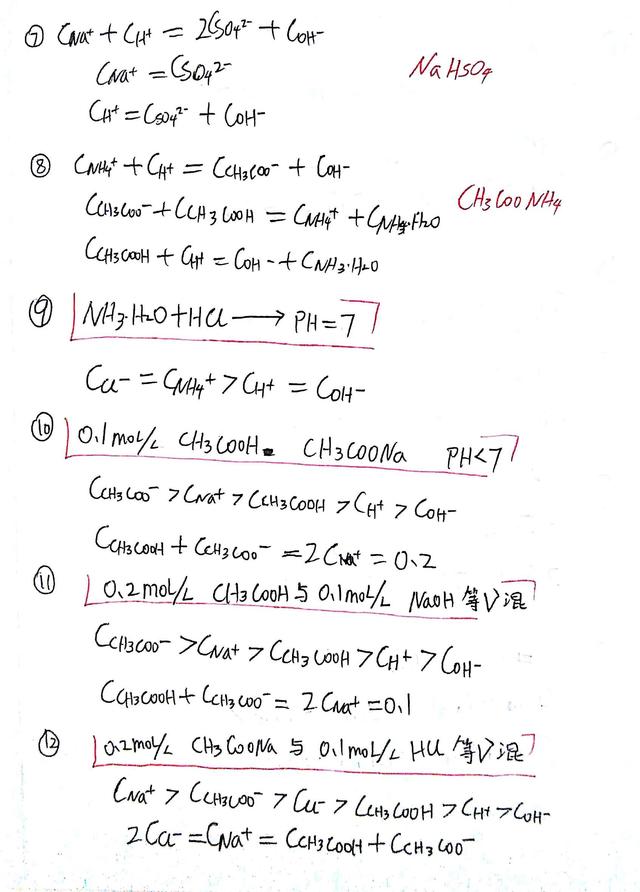 ⑦ CNa⁺ + CH⁺ = 2CSO₄²⁻ + COH⁻
CNa⁺ = CSO₄²⁻ NaHSO₄
CH⁺ = CSO₄²⁻ + COH⁻
⑧ CNH₄⁺ + CH⁺ = CCH₃COO⁻ + COH⁻
CCH₃COO⁻ + CCH₃COOH = CNH₄⁺ + CNH₃·H₂O CH₃COONH₄
CCH₃COOH + CH⁺ = COH⁻ + CNH₃·H₂O
⑨ NH₃·H₂O + HCl → PH = 7
CCl⁻ = CNH₄⁺ > CH⁺ = COH⁻
⑩ 0.1mol/L CH₃COOH CH₃COONa PH<7
CCH₃COO⁻ > CNa⁺ > CCH₃COOH > CH⁺ > COH⁻
CCH₃COOH + CCH₃COO⁻ = 2CNa⁺ = 0.2
⑪ 0.2mol/L CH₃COOH与0.1mol/L NaOH等V混
CCH₃COO⁻ > CNa⁺ > CCH₃COOH > CH⁺ > COH⁻
CCH₃COOH + CCH₃COO⁻ = 2CNa⁺ = 0.1
⑫ 0.2mol/L CH₃COONa与0.1mol/L HCl等V混
CNa⁺ > CCH₃COO⁻ > CCl⁻ > CCH₃COOH > CH⁺ > COH⁻
2CCl⁻ = CNa⁺ = CCH₃COOH + CCH₃COO⁻